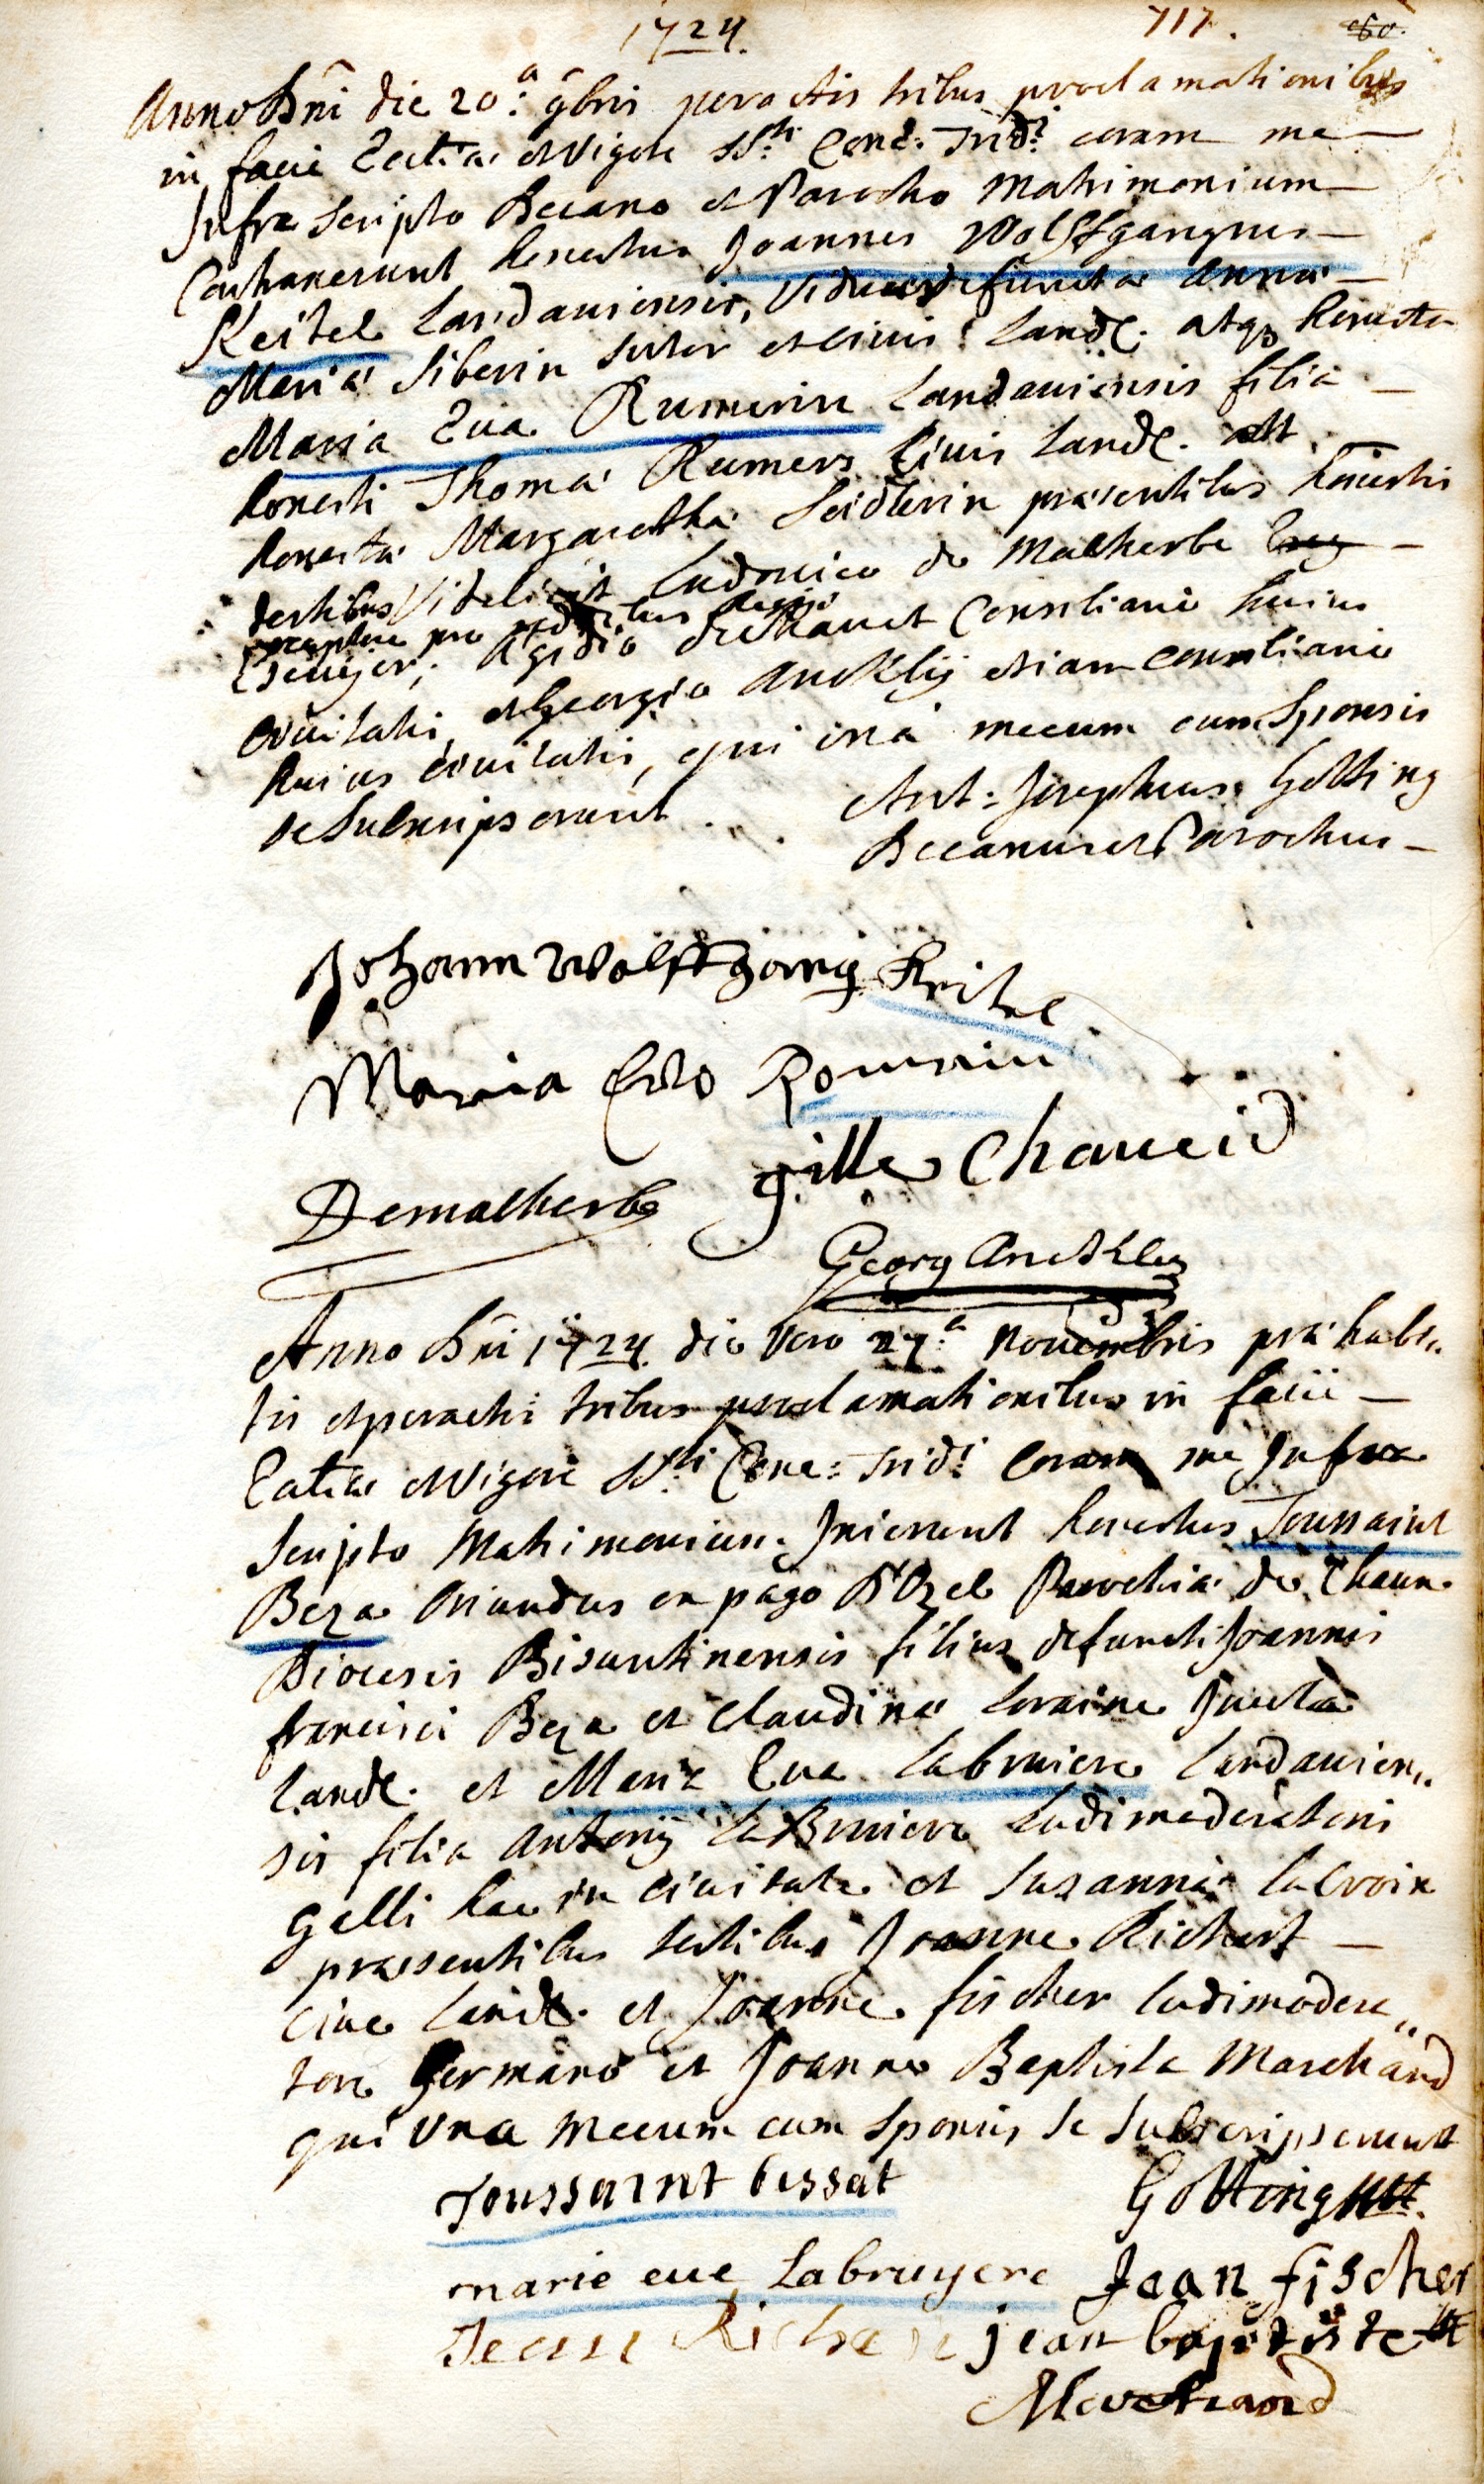 1724.
717.
Anno Dni die 20.a 9bris peractis tribus proclamationibus
in facie Ecclia et vigore SSti Conc: Trid: coram me
Infra scripto Decano et Parocho Matrimonium
Contraxerunt honestus Joannes Wolffgangus
Keitel Landaviensis, viduus defunctae Annae
Mariae Siberin sutor et civis Land. atq honesta
Maria Eva Rumerin Landaviensis filia
honesti Thomae Rumers Civis Land. et
honestae Margarethae Seidlerin praesentibus honestis
testibus videlicet Ludovico de Malherbe
Ægidio Consiliario huius
Civitatis, et Georgio Anckly etiam Consiliario
huius Civitatis, qui una mecum cum Sponsis
se Subscripserunt.
Ant: Josephus Gotting
Decanus et Parochus
Johann Wolffgang Keitel
Maria Eva Romerin
Demalherbe gille Chaueid
Georg Anckley
Anno Dni 1724 die vero 27.a Novembris prae habi„
tis et peractis tribus proclamationibus in facie
Ecclia et vigore SSti Conc: Trid: Coram me Infra
Scripto Matrimonium Inierunt honestus Toussaint
Beza oriundus ex pago Parochiae de
Diocesis Bisuntinensis filius defuncti Joannis
francisci Beza et Claudinae Loraine
Land. et Maria Eva Labruiere Landavien„
sis filia Antonij La Bruiere Ludimoderatoris
Galli hac in Civitate et Suzannae la Croix
praesentibus testibus Joanne Richert
Cive Land. et Joanne fischer ludimodera„
tore Germano et Joanne Baptista Marchand
qui una mecum cum Sponsis se Subscripserunt
Toussaint bessat
Gotting
marie eve Labruyere Jean fischer
Jean Richer jean baptiste
Marchand